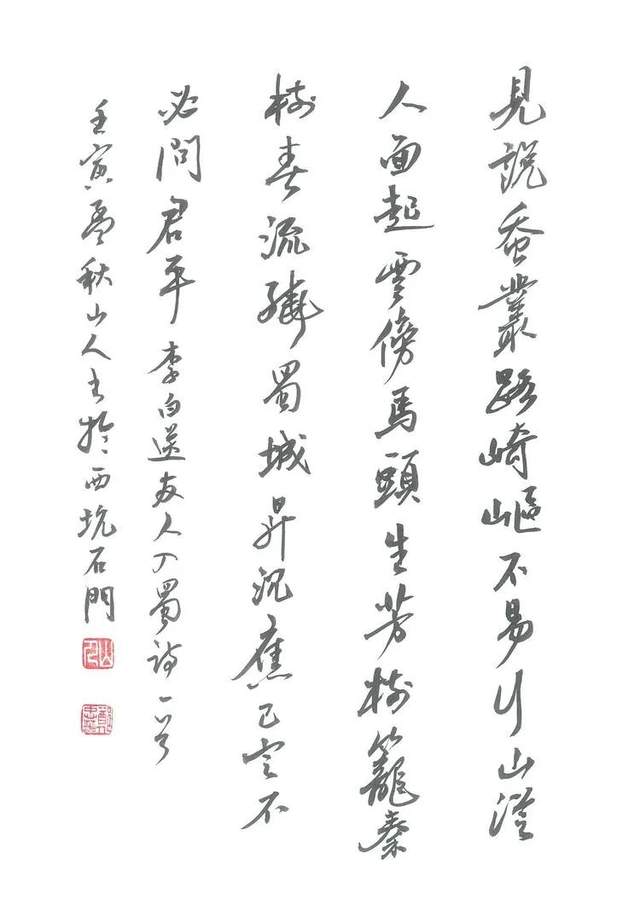 見說蚕叢路崎嶇不易行山從
人面起雲傍馬頭生芳樹籠秦
樹春流繞蜀城昇沉應已定不
必問君平 李白送友人入蜀詩一首
壬寅孟秋山人書於西坑石門
山人